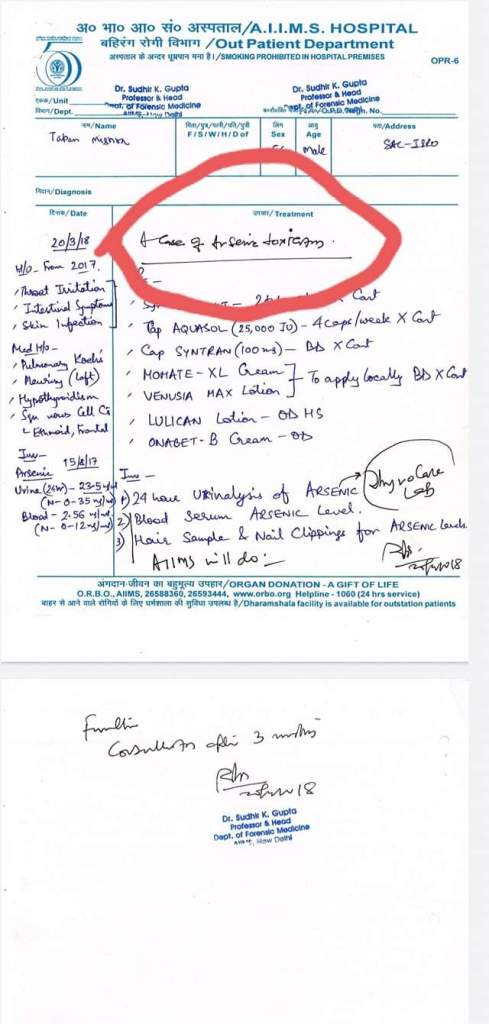 अ० भा० आ० सं० अस्पताल/A.I.I.M.S. HOSPITAL
बहिरंग रोगी विभाग /Out Patient Department
अस्पताल के अन्दर धूम्रपान मना है।/SMOKING PROHIBITED IN HOSPITAL PREMISES
OPR-6
Dr. Sudhir K. Gupta
Professor & Head
Dept. of Forensic Medicine
AIIMS, New Delhi
Dr. Sudhir K. Gupta
Professor & Head
Dept. of Forensic Medicine
एकक/Unit
विभाग/Dept.
नाम/Name
पिता/पुत्र/पत्नी/पति/पुत्री
F/S/W/H/D of
लिंग
Sex
आयु
Age
पता/Address
Tapan Mishra
Male
SAC-ISRO
निदान/Diagnosis
दिनांक/Date
उपचार/Treatment
20/3/18
A Case of Arsenic toxicosis.
H/o - From 2017.
Throat Irritation
Intestinal Symptoms
Skin Infection
Cont
Cap AQUASOL (25,000 IU) - 4 caps/week X Cont
Cap SYNTRAN (100 mg) - BD X Cont
MOMATE-XL Cream
VENUSIA MAX Lotion
To apply locally BD X Cont
LULICAN Lotion - OD HS
ONABET-B Cream - OD
Med H/o -
Pulmonary Koch's
Pleurisy (Left)
Hypothyroidism
Squamous Cell Ca
Ethmoid, Frontal
Inv -
Arsenic 15/8/17
Urine (24hr) - 23.5
(N - 0-35
Blood - 2.56
(N - 0-12
Inv -
1) 24 hour URinalysis of ARSENIC
Thyrocare Lab
2) Blood Serum ARSENIC Level.
3) Hair Sample & Nail Clippings for ARSENIC levels
AIIMS will do :-
अंगदान-जीवन का बहुमूल्य उपहार/ORGAN DONATION - A GIFT OF LIFE
O.R.B.O., AIIMS, 26588360, 26593444, www.orbo.org Helpline - 1060 (24 hrs service)
बाहर से आने वाले रोगियों के लिए धर्मशाला की सुविधा उपलब्ध है/Dharamshala facility is available for outstation patients
Consultation after 3 months
Dr. Sudhir K. Gupta
Professor & Head
Dept. of Forensic Medicine
AIIMS, New Delhi